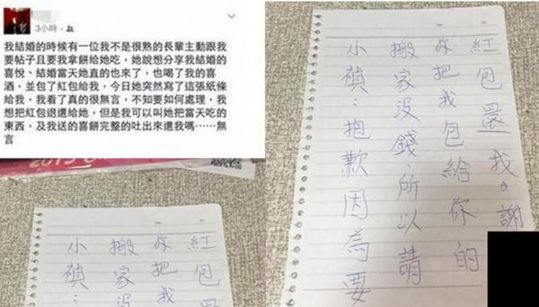 3小時
我結婚的時候有一位我不是很熟的長輩主動跟我
要帖子且要我拿餅給她吃，她說想分享我結婚的
喜悅、結婚當天她真的也來了，也喝了我的喜
酒，並包了紅包給我，今日她突然寫了這張紙條
給我，我看了真的很無言，不知要如何處理，我
想把紅包退還給她，但是我可以叫她把當天吃的
東西，及我送的喜餅完整的吐出來還我嗎⋯⋯無
言
2015
小禎：抱歉因為要
搬家沒錢，所以請
你把我包給你的
紅包還我。謝
小禎：
搬家沒
你把我
紅包還